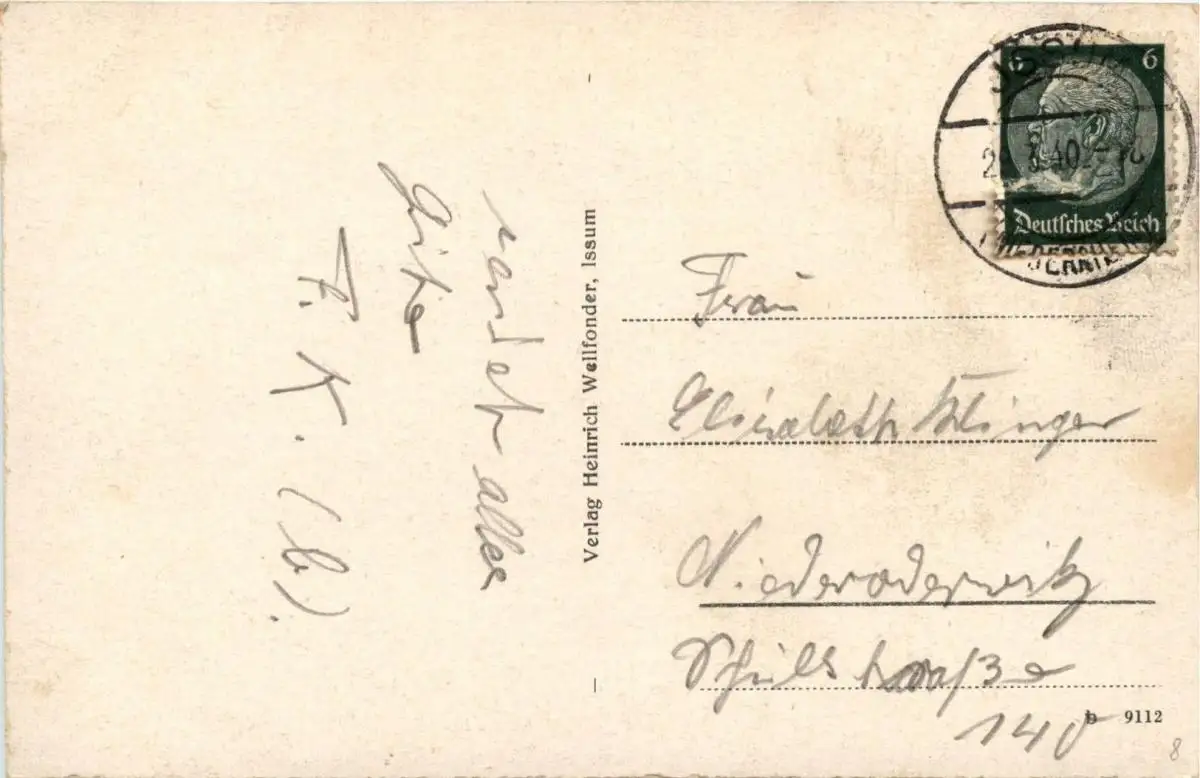 sendet alles
Gute
F. K. (b).
Verlag Heinrich Wellfonder, Issum
6 6
Deutsches Reich
ISSUM
29.3.40
(NIEDERRHEIN)
Frau
Elisabeth Klinger
Niederoderwitz
Straße
140
b 9112
8